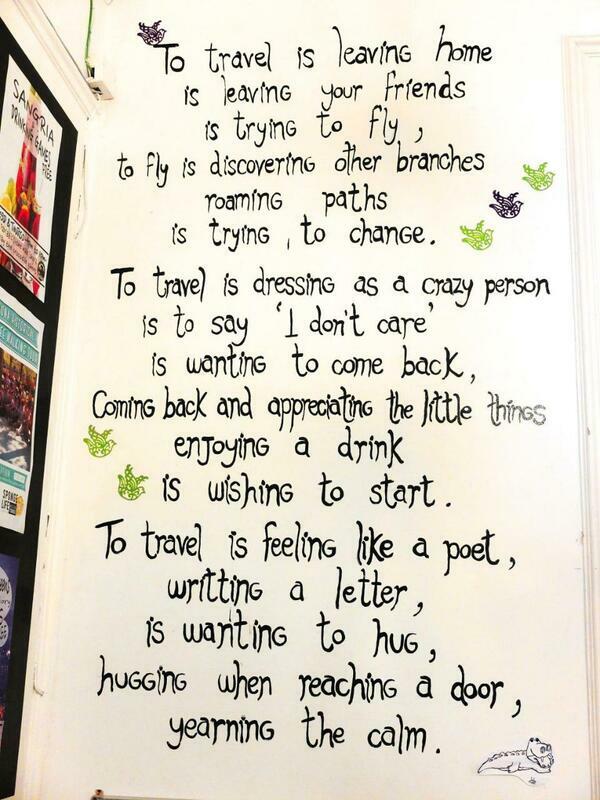 To travel is leaving home
is leaving your friends
is trying to fly,
to fly is discovering other branches
roaming paths
is trying, to change.
To travel is dressing as a crazy person
is to say 'I don't care'
is wanting to come back,
Coming back and appreciating the little things
enjoying a drink
is wishing to start.
To travel is feeling like a poet,
writting a letter,
is wanting to hug,
hugging when reaching a door,
yearning the calm.
SANGRIA
DRINKING GAMES
FREE
WALKING TOUR
SPONGE
LIFE